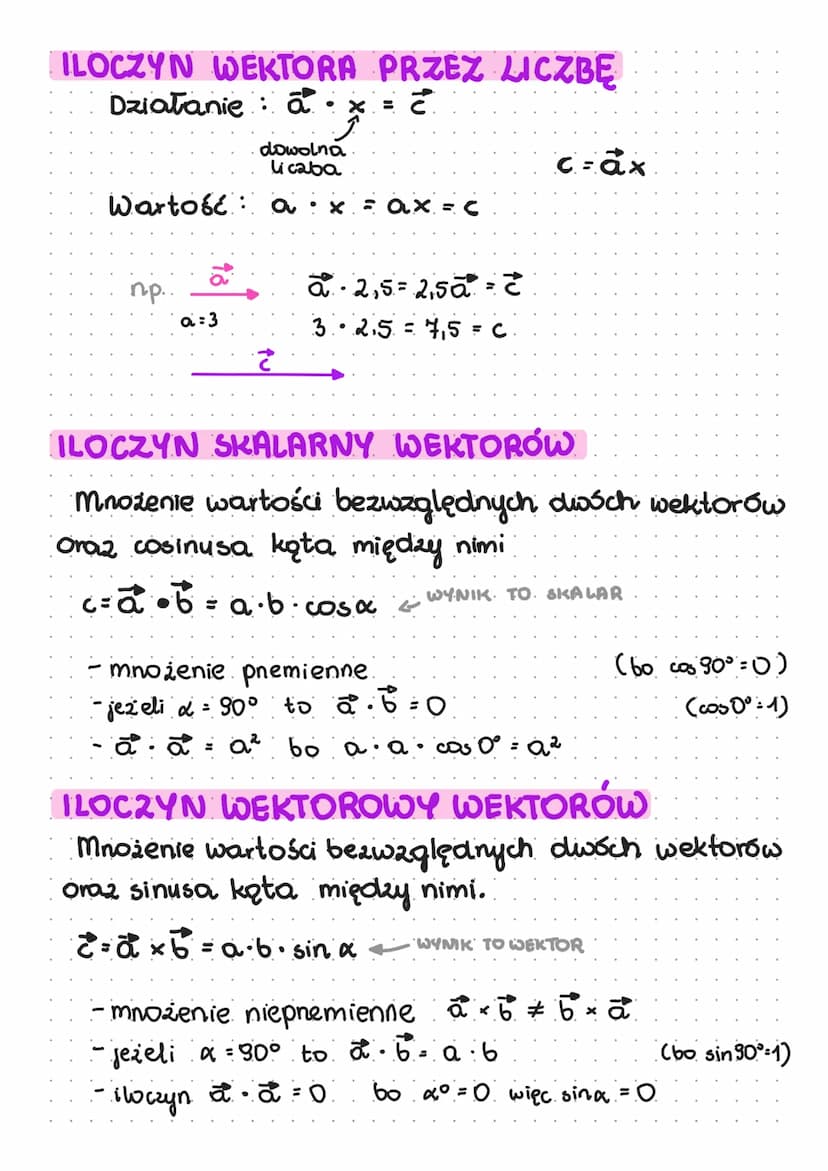 ILOCZYN WEKTORA PRZEZ LICZBĘ
Działanie : a⃗ · x = c⃗
dowolna
liczba
c = a⃗x
Wartość : a · x = ax = c
np. a⃗
a⃗ · 2,5 = 2,5a⃗ = c⃗
a = 3
3 · 2,5 = 7,5 = c
c⃗
ILOCZYN SKALARNY WEKTORÓW
Mnożenie wartości bezwzględnych dwóch wektorów
oraz cosinusa kąta między nimi
c = a⃗ • b⃗ = a · b · cos α ← WYNIK TO SKALAR
- mnożenie przemienne
(bo cos 90° = 0)
- jeżeli α = 90° to a⃗ · b⃗ = 0
(cos 0° = 1)
- a⃗ · a⃗ = a² bo a · a · cos 0° = a²
ILOCZYN WEKTOROWY WEKTORÓW
Mnożenie wartości bezwzględnych dwóch wektorów
oraz sinusa kąta między nimi.
c⃗ = a⃗ × b⃗ = a · b · sin α ← WYNIK TO WEKTOR
- mnożenie nieprzemienne a⃗ × b⃗ ≠ b⃗ × a⃗
- jeżeli α = 90° to a⃗ · b⃗ = a · b (bo sin 90° = 1)
- iloczyn a⃗ · a⃗ = 0 bo α° = 0 więc sin α = 0